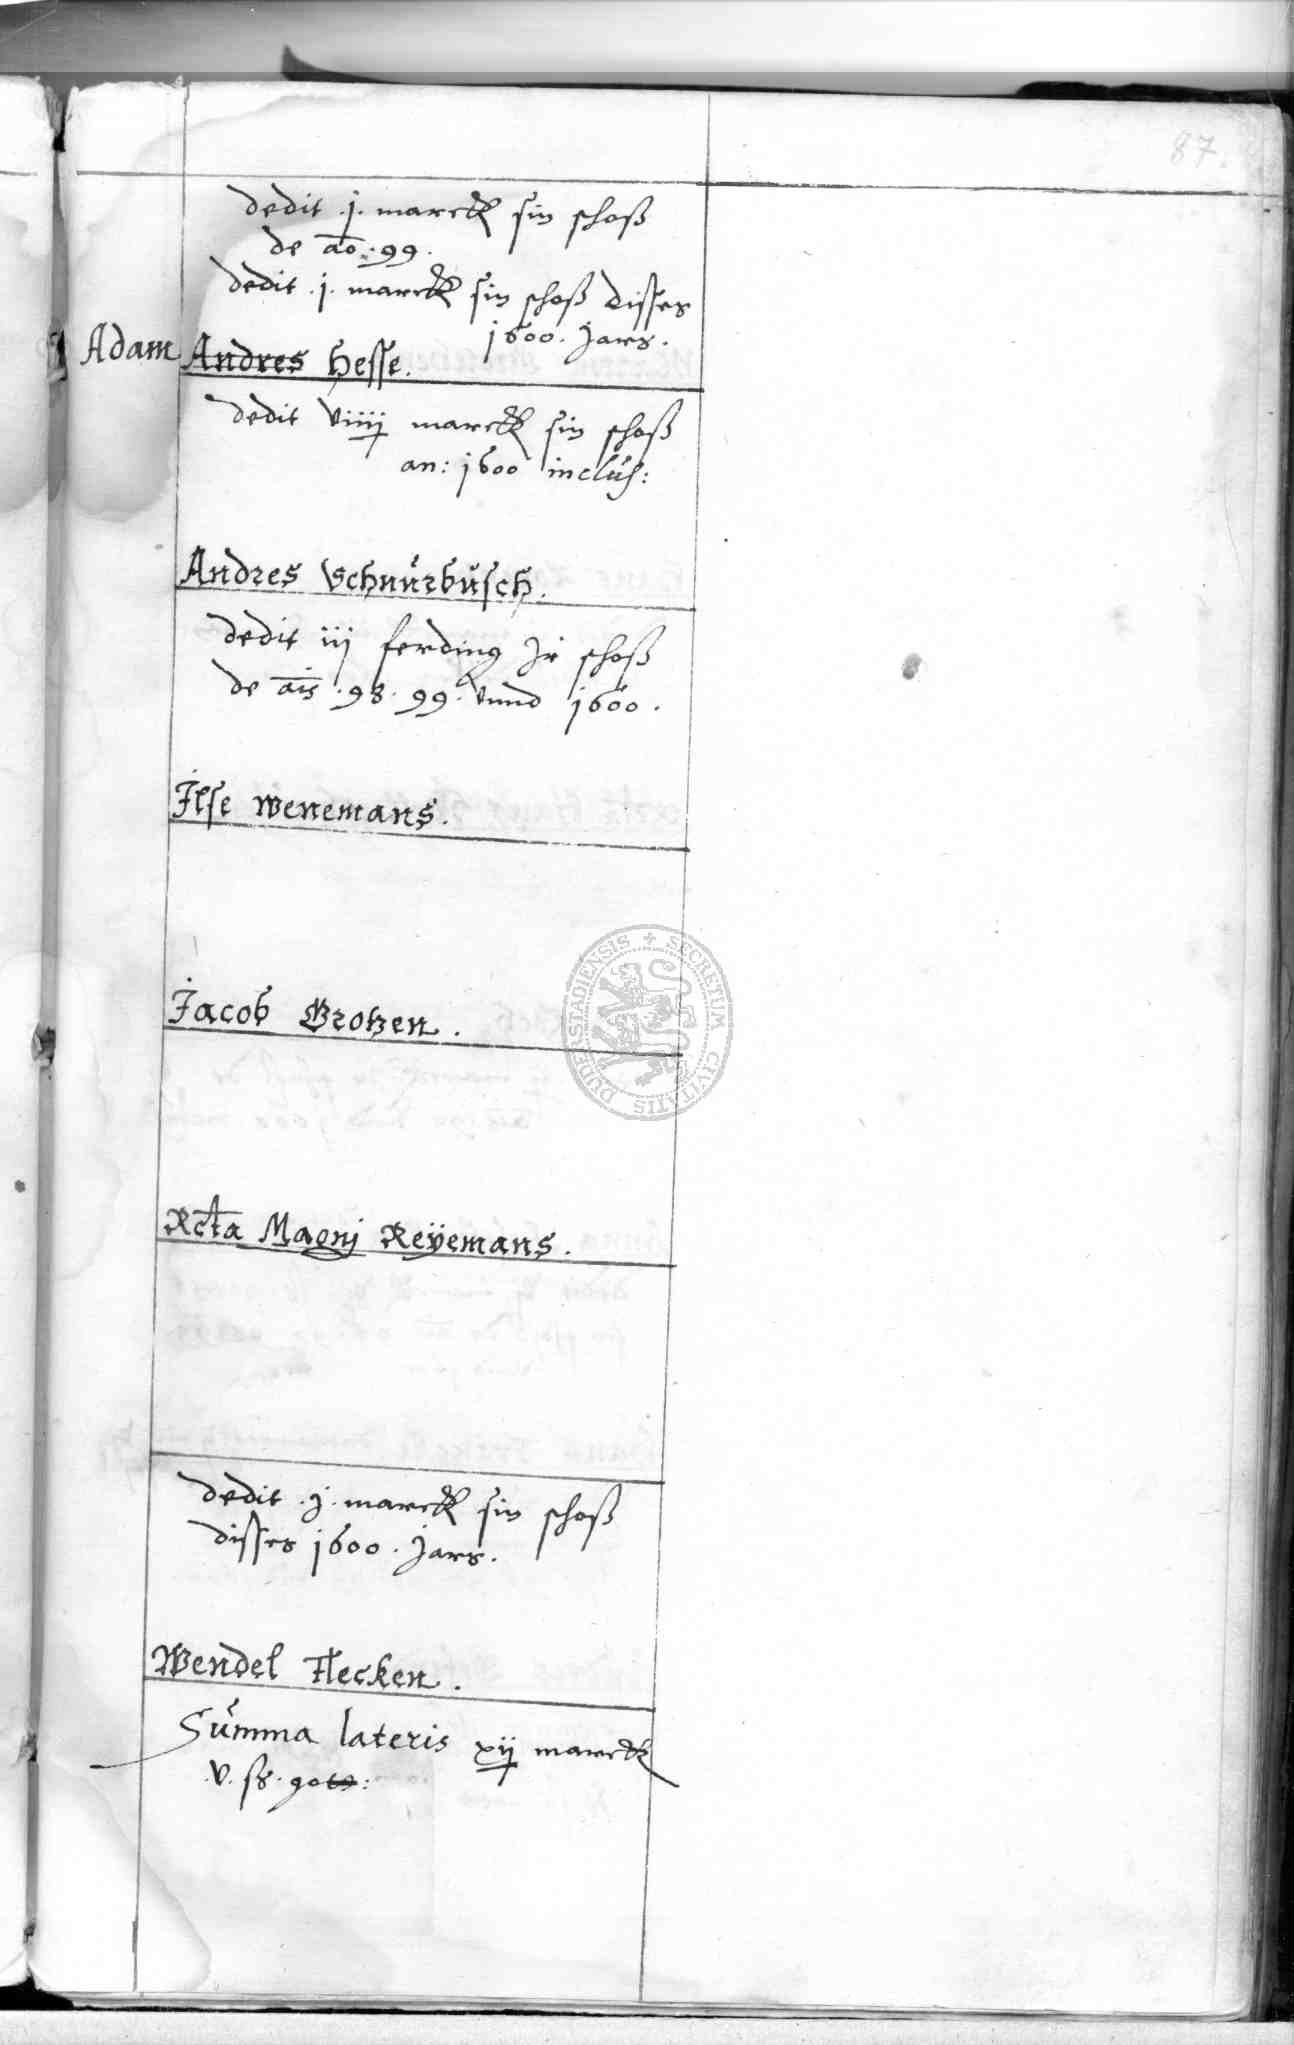 87.
dedit .j. marck sin schoß
de ao. 99.
dedit .j. marck sin schoß disses
1600. Jars.
Adam Andres Hesse.
dedit viiij marck sin schoß
an: 1600 inclus:
Andres Schnurbusch.
dedit iij ferding Jr schoß
de ais .98. 99. vnnd 1600.
Ilse Wenemans.
Jacob Grotzen.
Rcta Magnj Reyemans.
dedit .j. marck sin schoß
disses 1600. Jars.
Wendel Flecken.
Summa lateris xij marck
.v. ß. gott:
SECRETUM CIVITATIS DUDERSTADIENSIS